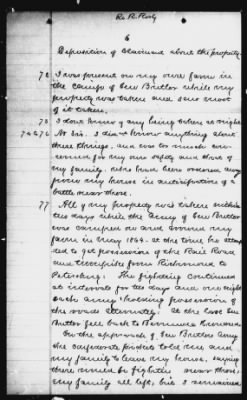 6
Deposition of Claimant about the property.
72 I was present on my own farm in
the camp of Gen Butler while my
property was taken and saw most
of it taken.
73 I dont know of any being taken at night
74 & 76 No Sir. I didnt know anything about
these things, and was too much con-
cerned for my own safety and that of
my family, who had been ordered away
from my house in anticipation of a
battle near there.
77 All of my property was taken within
ten days while the army of Gen Butler
was camped on and around my
farm in May 1864. at the time he attemp-
ted to get possession of the Rail Road
and turnpike from Richmond to
Petersburg. The fighting continued
at intervals for ten days and over night
each army having possession of
the roads alternately. At the last Gen
Butler fell back to Bermuda Hundred.
On the approach of Gen Butlers Army
the confederate pickets told me and
my family to leave my house, saying
there would be fighting near there.
my family all left, but I remained